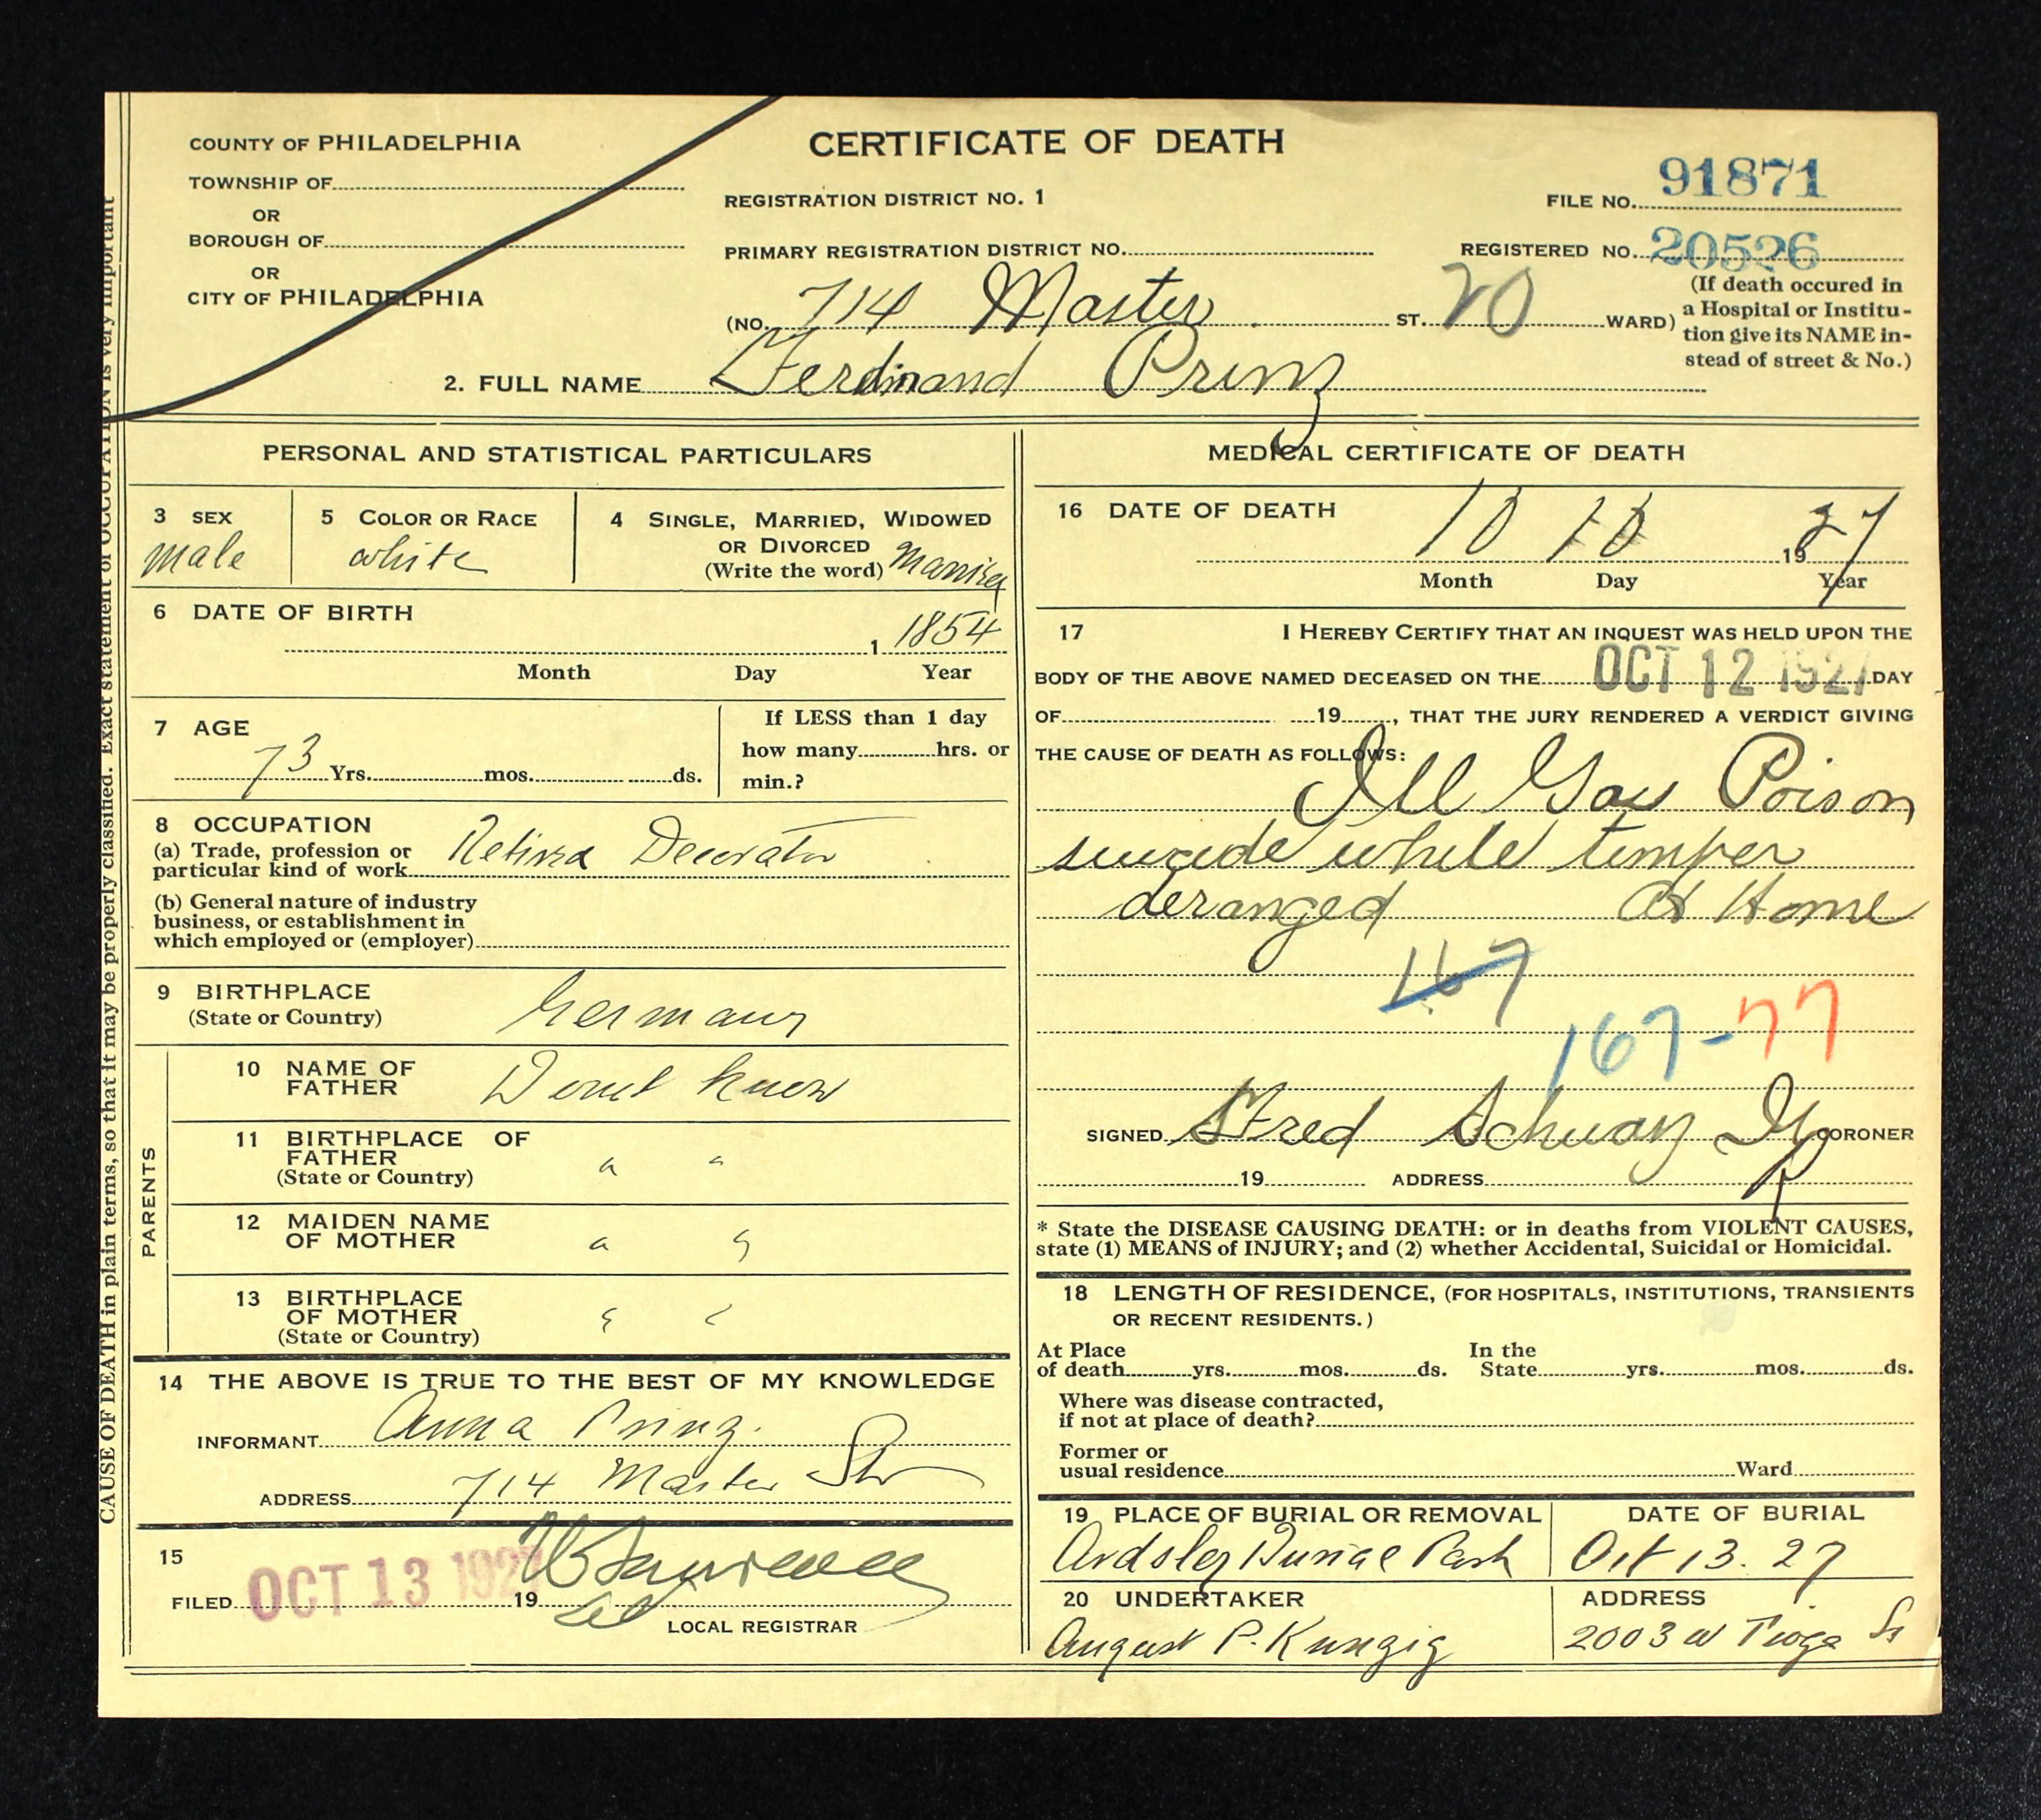 COUNTY OF PHILADELPHIA
TOWNSHIP OF
OR
BOROUGH OF
OR
CITY OF PHILADELPHIA
CERTIFICATE OF DEATH
REGISTRATION DISTRICT NO. 1
PRIMARY REGISTRATION DISTRICT NO.
FILE NO. 91871
REGISTERED NO. 20526
(NO. 714 Master ST. 20 WARD)
(If death occured in
a Hospital or Institu-
tion give its NAME in-
stead of street & No.)
2. FULL NAME Ferdinand Prinz
CAUSE OF DEATH in plain terms, so that it may be properly classified. Exact statement of OCCUPATION is very important
PERSONAL AND STATISTICAL PARTICULARS
3 SEX
male
5 COLOR OR RACE
white
4 SINGLE, MARRIED, WIDOWED
OR DIVORCED
(Write the word) Married
6 DATE OF BIRTH
1 1854
Month Day Year
7 AGE
73 Yrs. mos. ds.
If LESS than 1 day
how many hrs. or
min.?
8 OCCUPATION
(a) Trade, profession or
particular kind of work Retired Decorator
(b) General nature of industry
business, or establishment in
which employed or (employer)
9 BIRTHPLACE
(State or Country) Germany
PARENTS
10 NAME OF
FATHER Dont know
11 BIRTHPLACE OF
FATHER
(State or Country) " "
12 MAIDEN NAME
OF MOTHER " "
13 BIRTHPLACE
OF MOTHER
(State or Country) " "
14 THE ABOVE IS TRUE TO THE BEST OF MY KNOWLEDGE
INFORMANT Anna Prinz.
ADDRESS 714 Master Str
15
FILED OCT 13 1927 19
LOCAL REGISTRAR
MEDICAL CERTIFICATE OF DEATH
16 DATE OF DEATH
10 10 1927
Month Day Year
17 I HEREBY CERTIFY THAT AN INQUEST WAS HELD UPON THE
BODY OF THE ABOVE NAMED DECEASED ON THE OCT 12 1927 DAY
OF 19 , THAT THE JURY RENDERED A VERDICT GIVING
THE CAUSE OF DEATH AS FOLLOWS:
Ill Gas Poison
suicide while temper
deranged At Home
167
167-77
SIGNED Fred Schwarz Jr CORONER
19 ADDRESS
* State the DISEASE CAUSING DEATH: or in deaths from VIOLENT CAUSES,
state (1) MEANS of INJURY; and (2) whether Accidental, Suicidal or Homicidal.
18 LENGTH OF RESIDENCE, (FOR HOSPITALS, INSTITUTIONS, TRANSIENTS
OR RECENT RESIDENTS.)
At Place
of death yrs. mos. ds.
In the
State yrs. mos. ds.
Where was disease contracted,
if not at place of death?
Former or
usual residence Ward
19 PLACE OF BURIAL OR REMOVAL
Ardsley Burial Park
DATE OF BURIAL
Oct 13. 27
20 UNDERTAKER
August P. Kunzig
ADDRESS
2003 W Tioga St